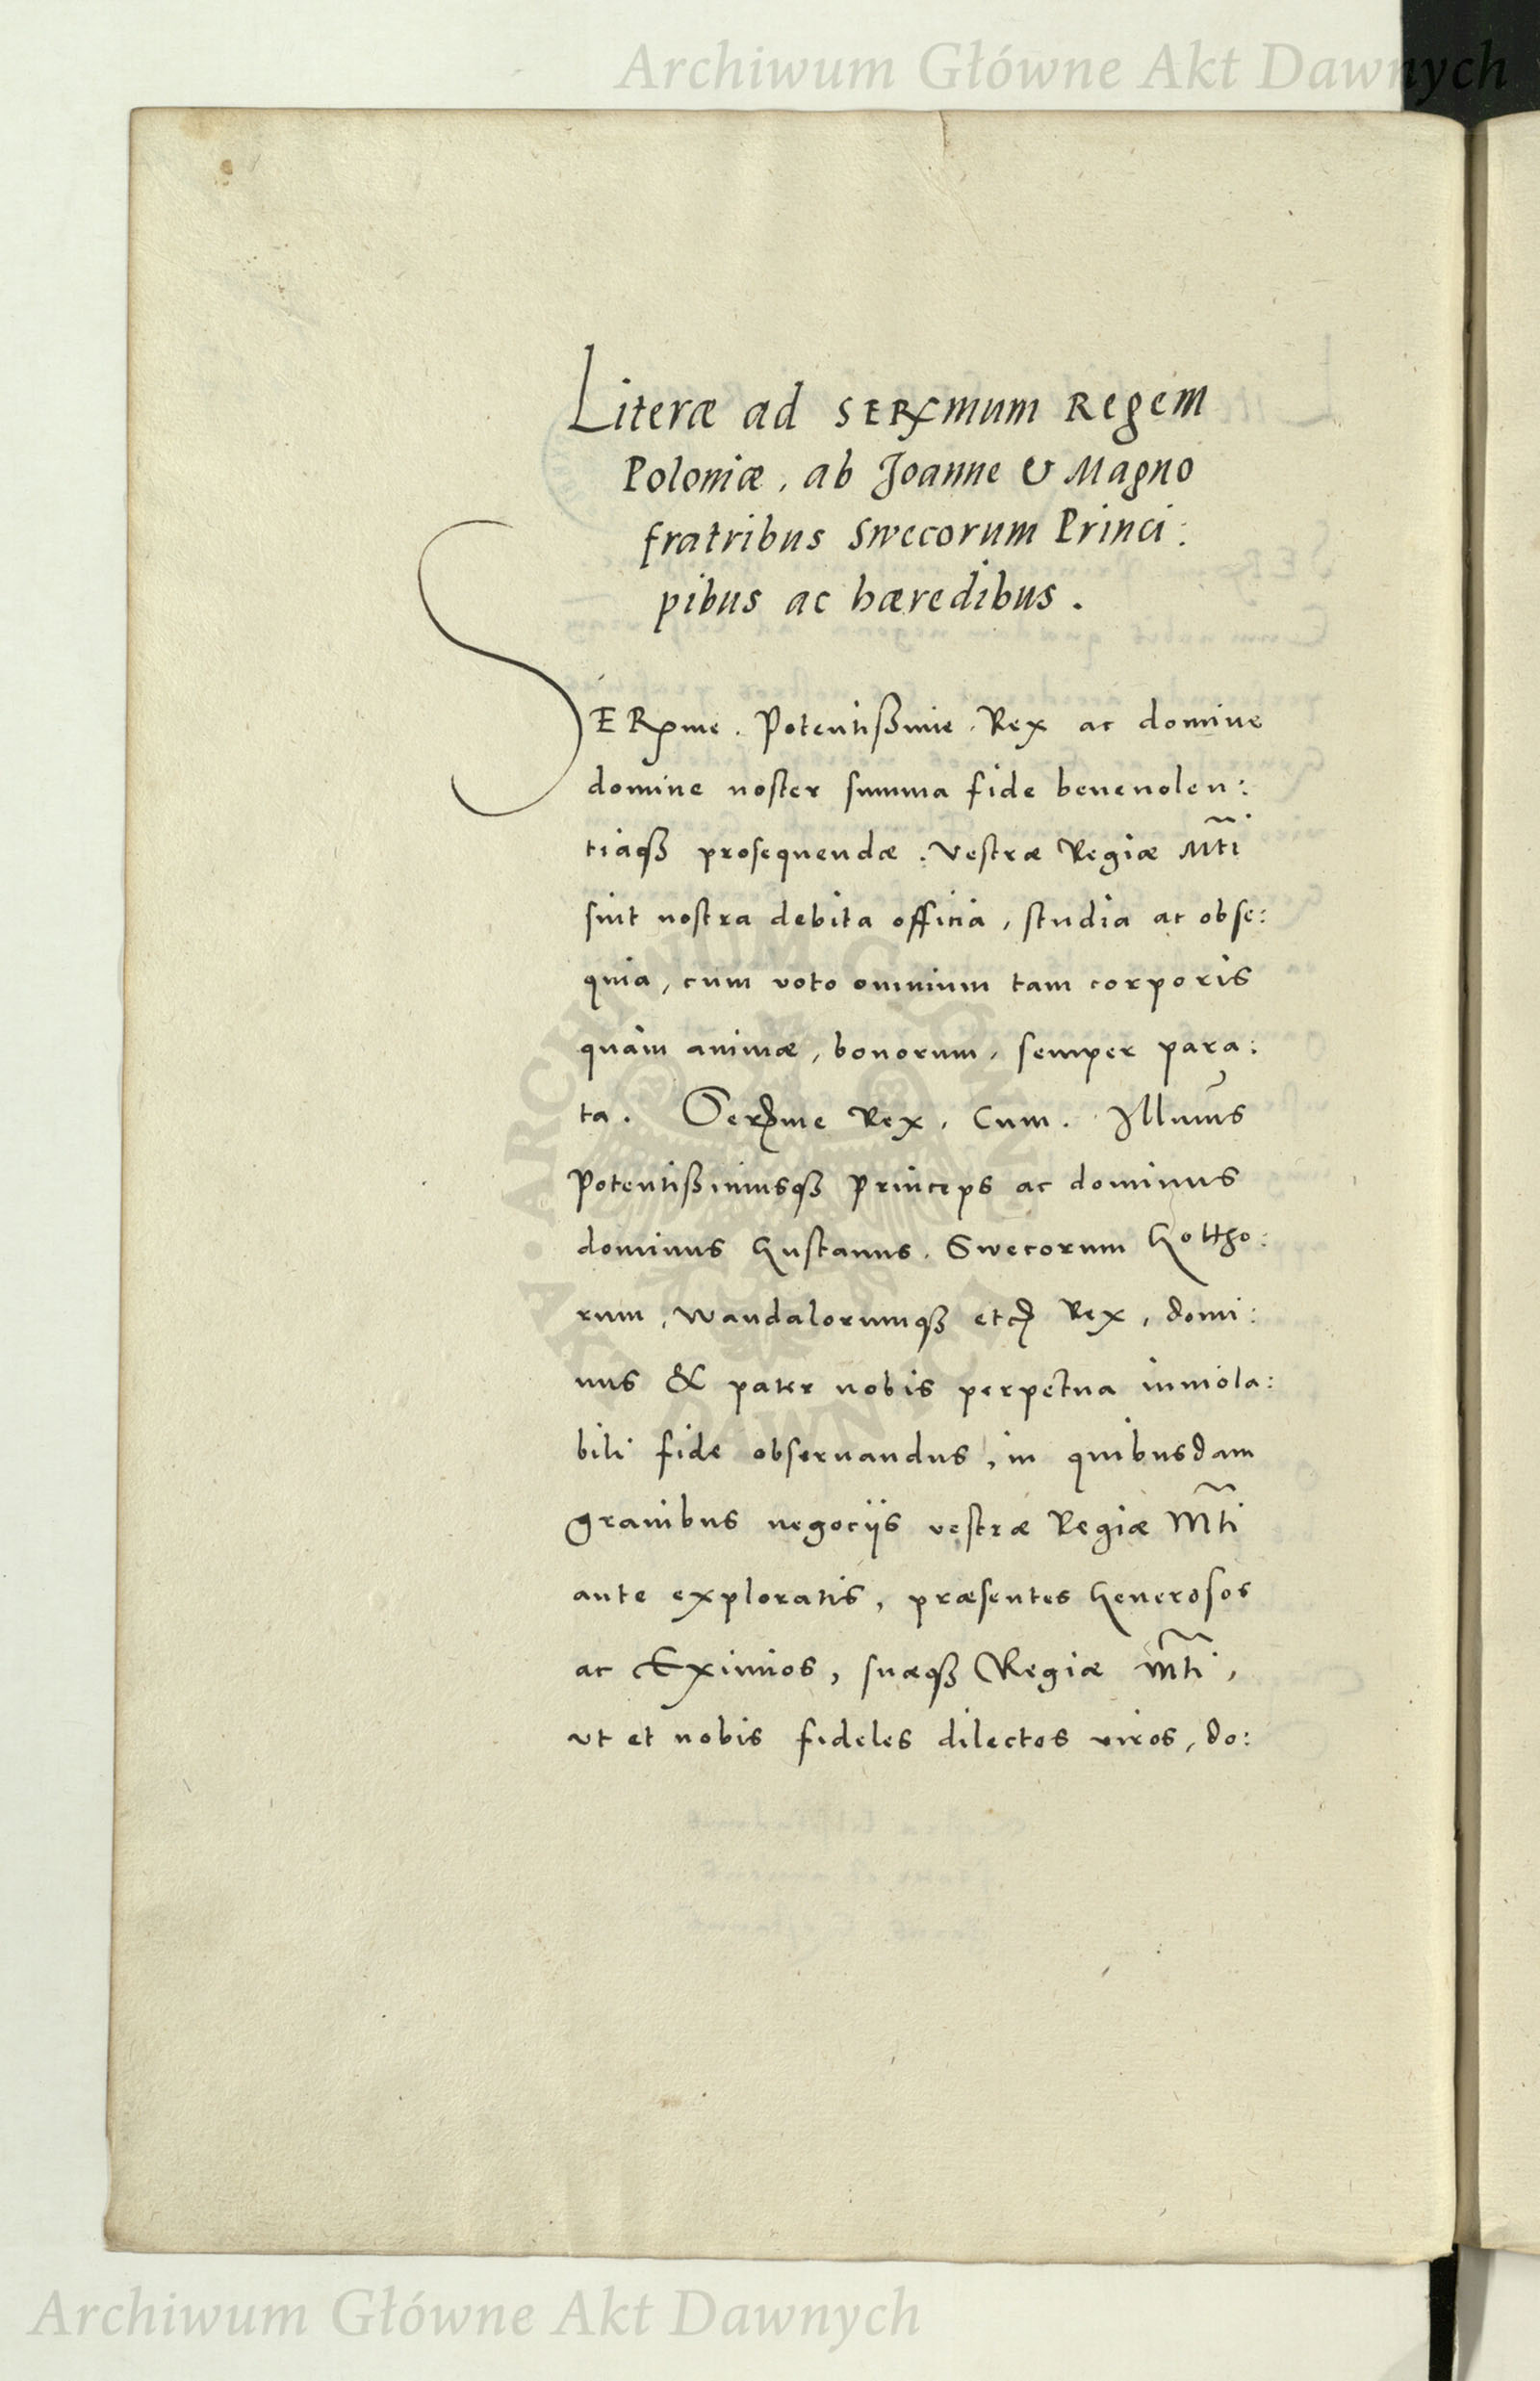 Archiwum Główne Akt Dawnych
Literæ ad SERxmum Regem
Poloniæ, ab Joanne & Magno
fratribus Swecorum Princi:
pibus ac hæredibus.
SERxme. Potentißime. Rex ac domine
domine noster summa fide beneuolen:
tiaq3 prosequendæ. Vestræ Regiæ Mti
sint nostra debita officia, studia ac obse:
quia, cum voto omnium tam corporis
quam animæ, bonorum, semper para:
ta. Serxme Rex, Cum. Illmus
Potentißimusq3 Princeps ac dominus
dominus Gustauus. Swecorum Gottho:
rum, Wandalorumq3 etc Rex, domi:
nus & pater nobis perpetua inuiola:
bili fide obseruandus, in quibusdam
grauibus negocijs vestræ Regiæ Mti
ante exploratis, præsentes Generosos
ac Eximios, suæq3 Regiæ Mti,
vt et nobis fideles dilectos viros, do:
ARCHIWUM GŁÓWNE AKT DAWNYCH
Archiwum Główne Akt Dawnych